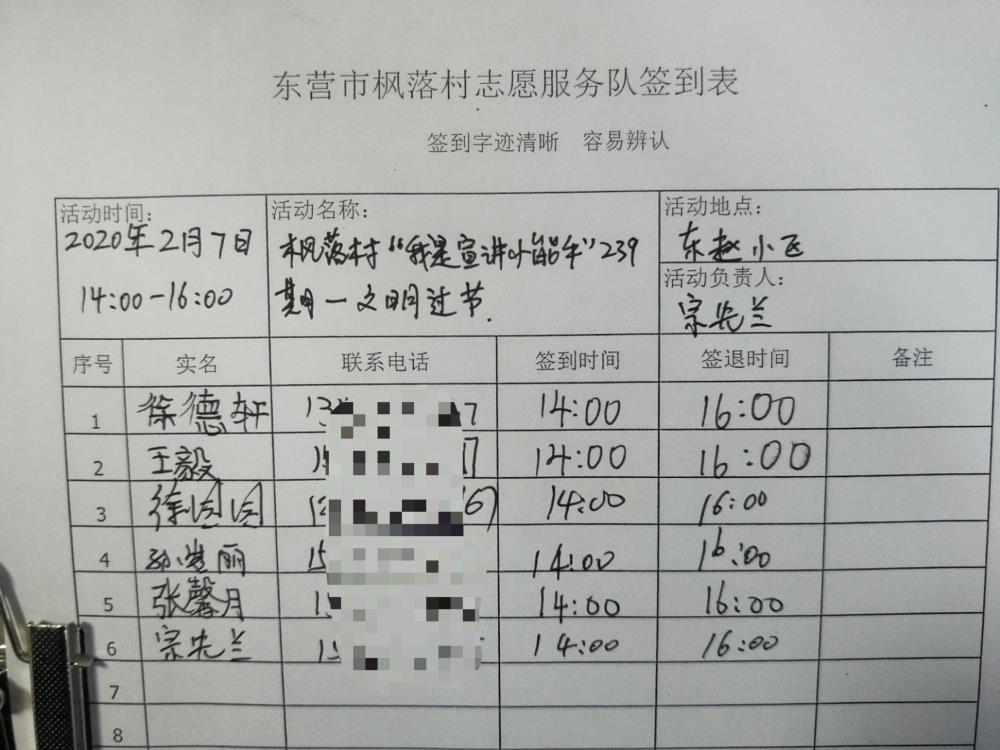 东营市枫落村志愿服务队签到表
签到字迹清晰 容易辨认
活动时间：
2020年2月7日
14:00-16:00
活动名称：
枫落村“我是宣讲小能手”239
期一文明过节.
活动地点：
东赵小区
活动负责人：
宗先兰
序号 实名 联系电话 签到时间 签退时间 备注
1 徐德轩 14:00 16:00
2 王毅 14:00 16:00
3 14:00 16:00
4 丽 14:00 16:00
5 张馨月 14:00 16:00
6 宗先兰 14:00 16:00
7
8